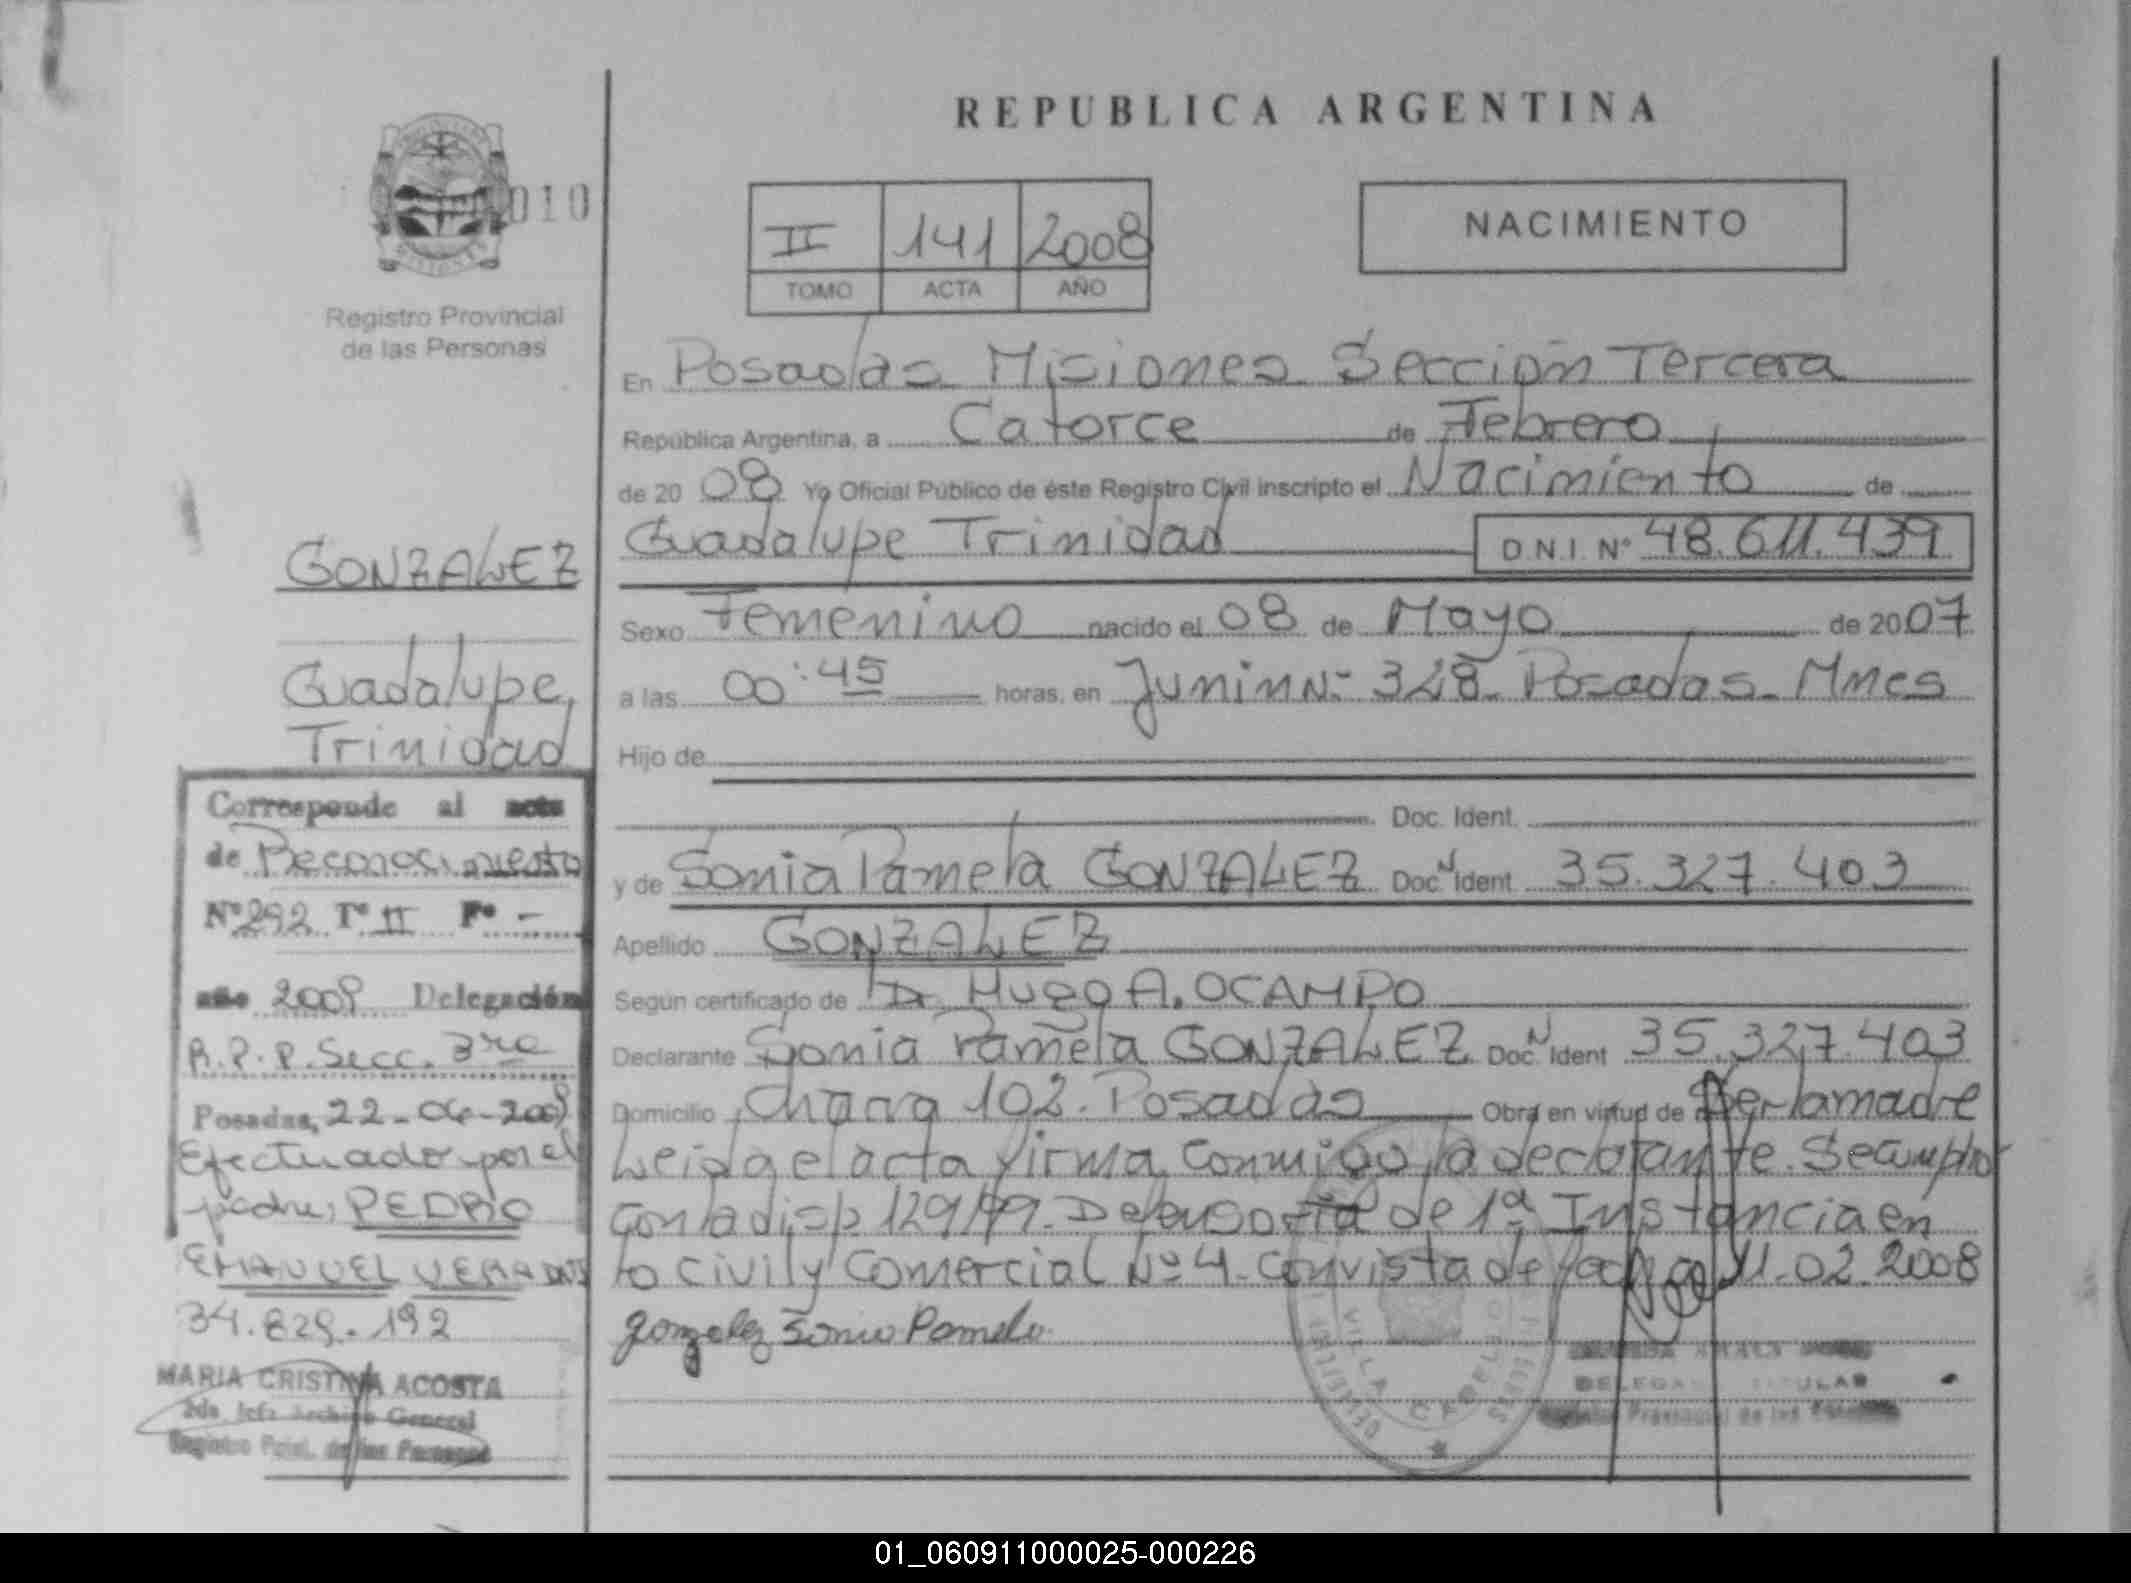 REPUBLICA ARGENTINA
010
Registro Provincial
de las Personas
II 141 2008
TOMO ACTA AÑO
NACIMIENTO
En Posadas Misiones Sección Tercera
República Argentina, a Catorce de Febrero
de 20 08 Yo Oficial Público de éste Registro Civil inscripto el Nacimiento de
Guadalupe Trinidad D.N.I. Nº 48.611.439
Sexo Femenino nacido el 08 de Mayo de 2007
a las 00:45 horas, en Junin Nº 328 Posadas Mnes
Hijo de
Doc. Ident.
y de Sonia Pamela GONZALEZ Doc. Ident 35.327.403
Apellido GONZALEZ
Según certificado de Dr. Hugo A. OCAMPO
Declarante Sonia Pamela GONZALEZ Doc. Ident 35.327.403
Domicilio Chacra 102. Posadas Obra en virtud de Ser la madre
Leida el acta firma conmigo la declarante. Se cumplio
con la disp 129/99. Defensoria de 1ª Instancia en
lo civil y Comercial Nº 4. Con vista de 11.02.2008
gonzalez Sonia Pamela
GONZALEZ
Guadalupe,
Trinidad
Corresponde al acta
de Reconocimiento
Nº 292 Tº II Fº -
año 2008 Delegación
R.P.P. Secc. 3ra
Posadas, 22-04-2008
Efectuado por el
padre; PEDRO
EMANUEL VERA DNI
34.829.192
MARIA CRISTINA ACOSTA
2da Jefa Archivo General
Registro Pcial. de las Personas
VILLA CABELLO
DELEGA TITULAR
Registro Provincial de las Personas
01_060911000025-000226